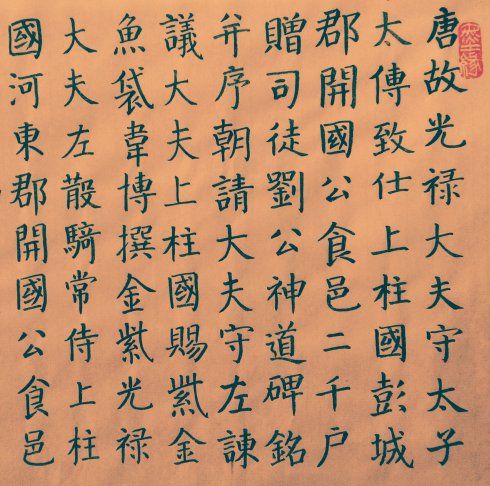 唐故光禄大夫守太子
太傅致仕上柱國彭城
郡開國公食邑二千户
贈司徒劉公神道碑銘
并序朝請大夫守左諫
議大夫上柱國賜紫金
魚袋韋博撰金紫光禄
大夫左散騎常侍上柱
國河東郡開國公食邑